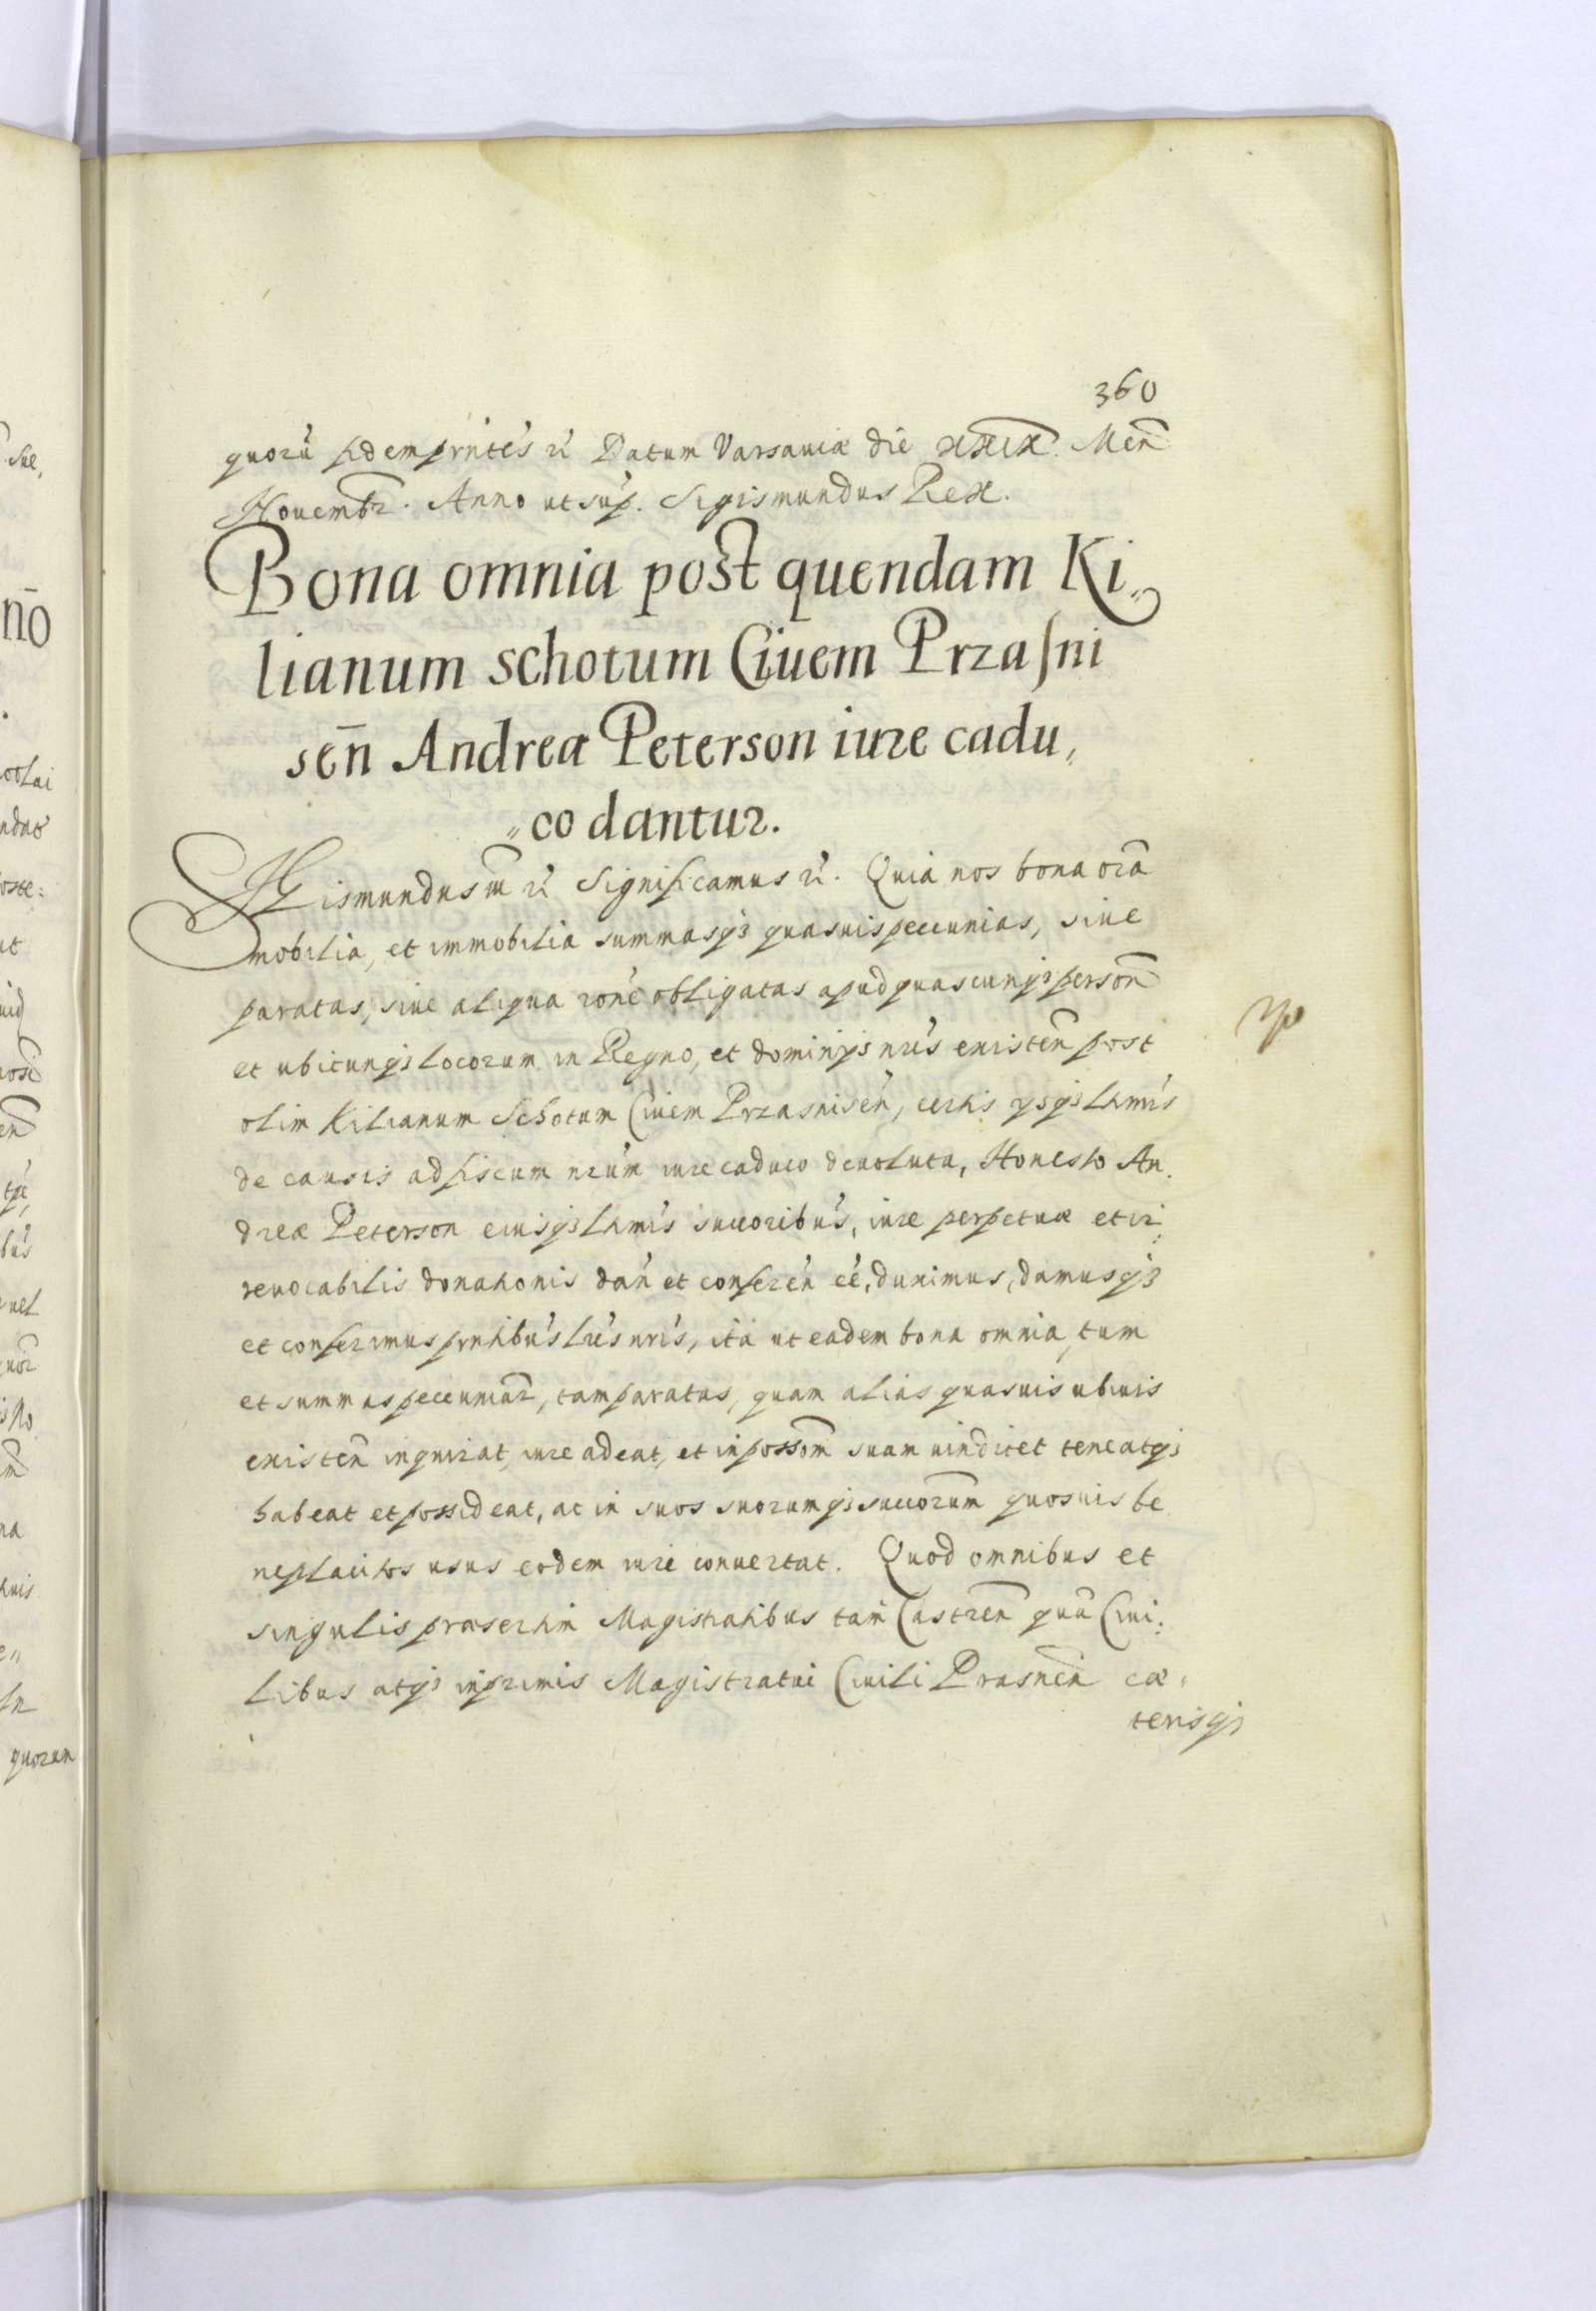 360
quorū fidem prnte's rc̃ Datum Varsaviæ die xxix. Men̄
Novembr̃. Anno ut sup. Sigismundus Rex.
Bona omnia post quendam Ki„
lianum schotum Ciuem Przasni
sen̄ Andreæ Peterson iure cadu„
„co dantur.
Sigismundus III rc̃ Significamus rc̃. Quia nos bona oīa
mobilia, et immobilia summasqȝ quasuis peccunias, siue
paratas, siue aliqua rōne obligatas apud quascunqȝ person̄
et ubicunqȝ locorum in Regno, et dominijs nrīs existen̄ post
olim Kilianum Schotum Ciuem Przasnisen̄, certis ysqȝ Ltmīs
de causis ad fiscum nrūm iure caduco deuoluta, Honesto An.
dreæ Peterson eiusqȝ Ltmīs succoribūs, iure perpetuæ et ir:
reuocabilis donationis dan̄ et conferen̄ eē, duximus, damusqȝ
et conferimus prntibūs Lrīs nrīs, ita ut eadem bona omnia, tum
et summas peccuniar̃, tam paratas, quam alias quasuis ubiuis
existen̄ inquirat, iure adeat, et in possom̄ suam uindicet teneatqȝ
habeat et possideat, ac in suos suorumqȝ succorum̄ quosuis be
neplacitos usus eodem iure conuertat. Quod omnibus et
singulis præsertim Magistratibus tam Castren̄ quā Ciui:
libus atqȝ inprimis Magistratui Ciuili Prasnen̄ cæ.
terisqȝ